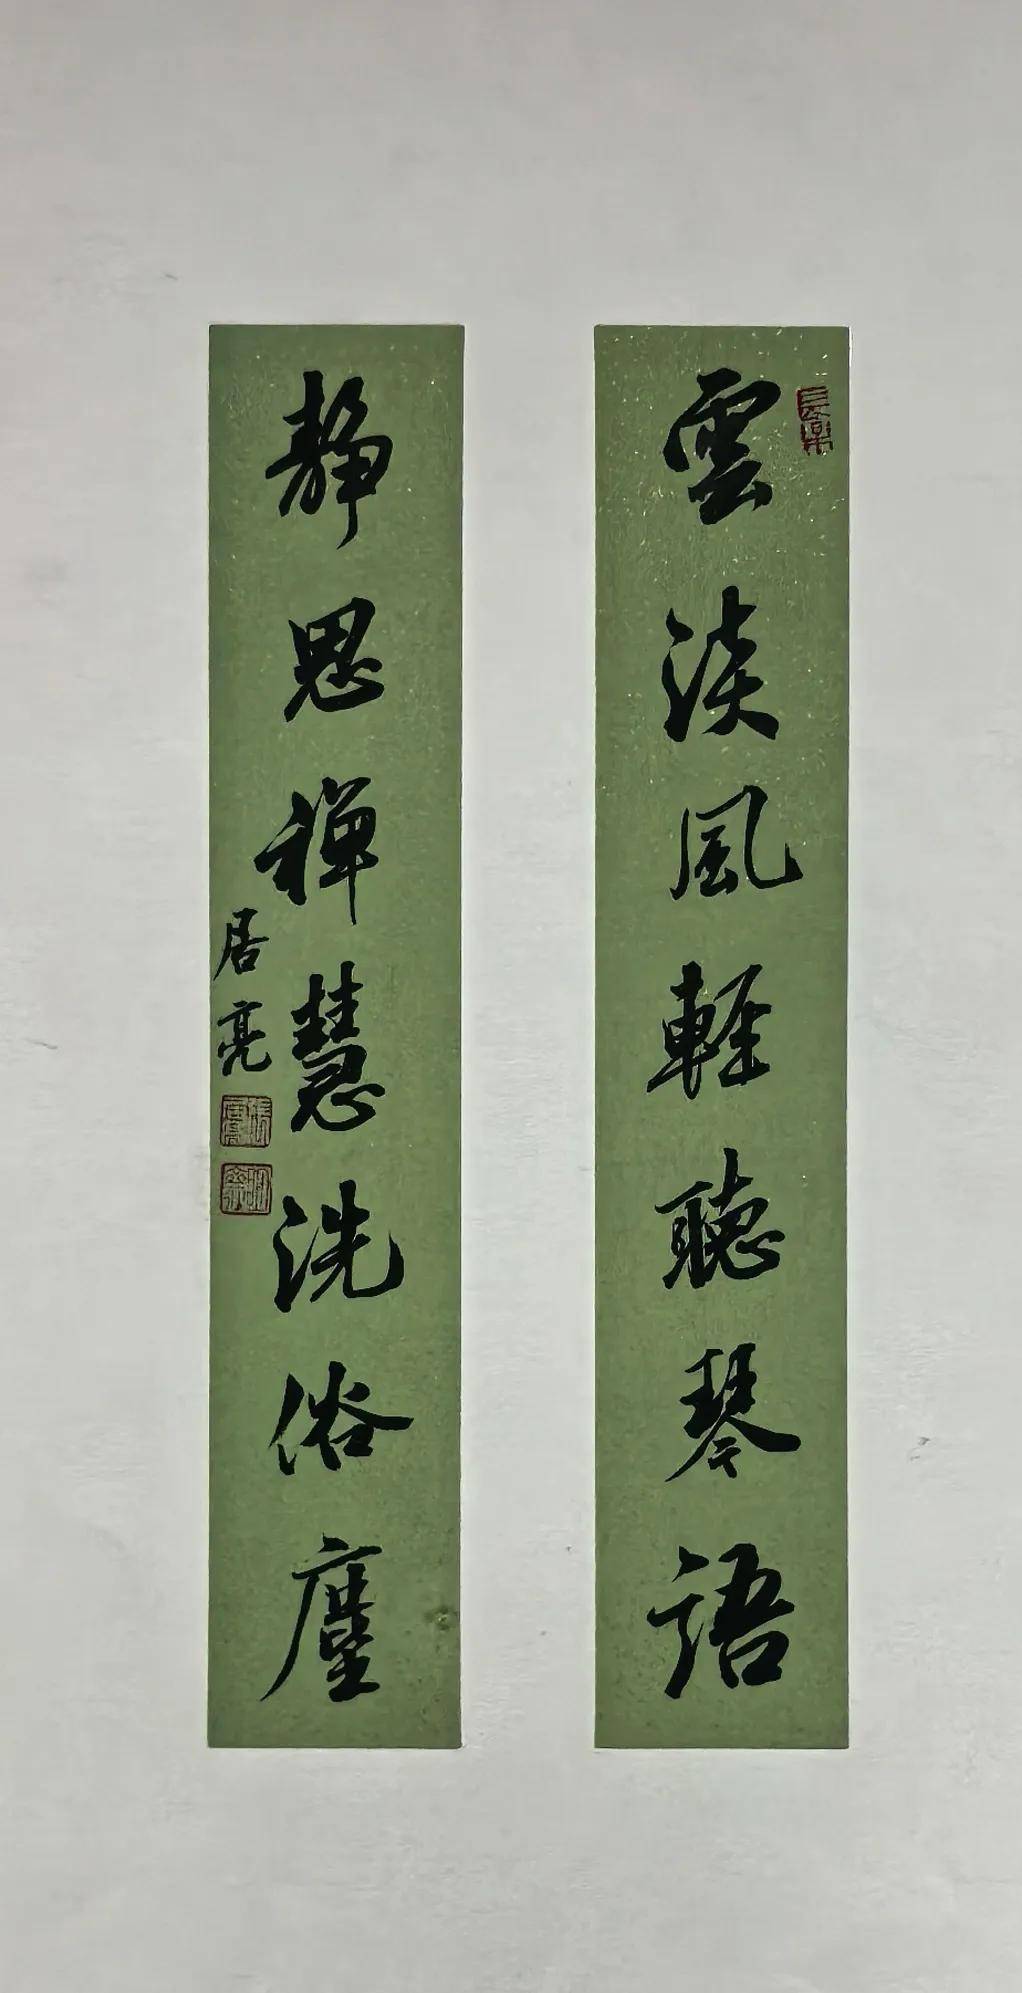 雲淡風輕聽琴語
静思禪慧洗俗塵
居亮